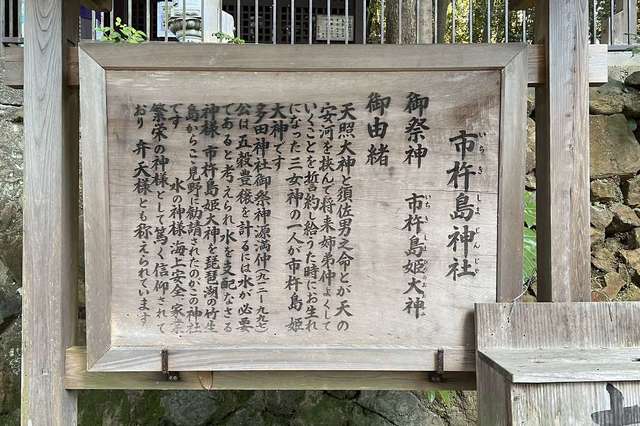 市杵島神社
いちきしまじんじゃ
御祭神 市杵島姫大神
御由緒
天照大神と須佐男之命とが天の
安河を挟んで将来姉弟仲よくして
いくことを誓約し給うた時にお生れ
になった三女神の一人が市杵島姫
大神です
多田神社御祭神源満仲(九一二ー九九七)
公は五穀豊穣を計るには水が必要
であると考えられ水を支配なさる
神様・市杵島姫大神を琵琶湖の竹生
島からこゝ見野に勧請されたのがこの神社
です 水の神様 海上安全 家業
繁栄の神様として篤く信仰されて
おり 弁天様とも称えられています